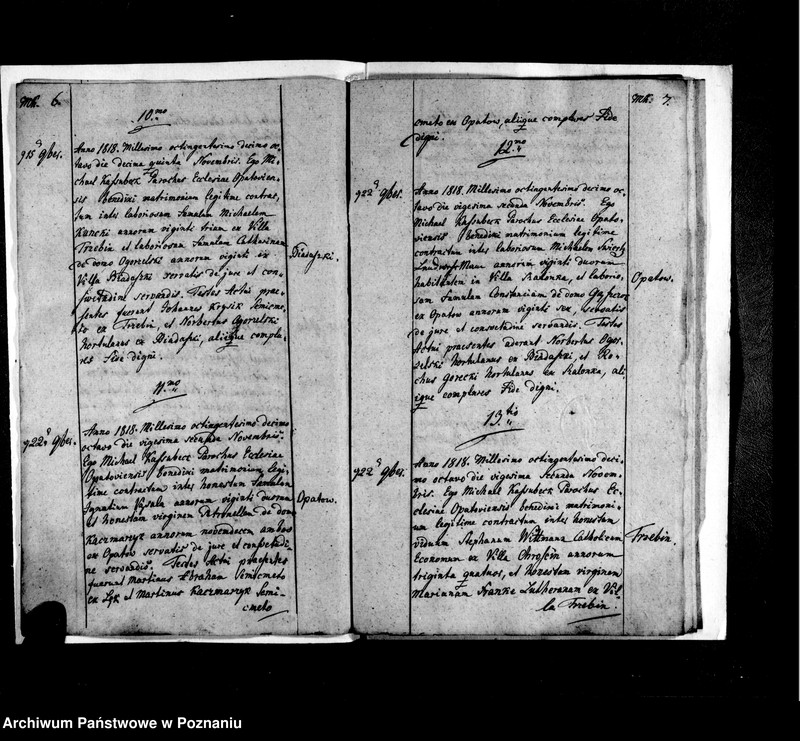 MK. 6.
10.mo
d 915 9bres.
Anno 1818. Millesimo octingentesimo decimo oc-
tavo die decima quinta Novembris. Ego Mi-
chael Kassubeck Parochus Ecclesiae Opatovien-
sis benedixi matrimonium legitime contrac-
tum inter laboriosum famulum Michaelem
annorum viginti trium ex Villa
Trzebin et laboriosam famulam Catharinam
de domo Ogorelski annorum viginti ex
Villa Biadaszki servatis de jure et con-
swetudine servandis. Testes Actui prae-
sentes fuerunt Johannes Krysik Semicme-
to ex Trzebin, et Norbertus Ogorelski
Hortulanus ex Biadaszki, aliique complu-
res Fide digni.
Biadaszki.
11.mo
922 9bres.
Anno 1818. Millesimo octingentesimo decimo
octavo die vigesima secunda Novembris.
Ego Michael Kassubeck Parochus Ecclesiae
Opatoviensis benedixi matrimonium legi-
time contractum inter honestum famulum
Ignatium annorum viginti duorum
et honestam virginem Petronellam de domo
Kaczmaryk annorum novendecem ambos
ex Opatow servatis de jure et consvetudi-
ne servandis. Testes Actui praesentes
fuerunt Martinus Abraham Semicmeto
ex et Martinus Kaczmaryk Semi-
cmeto
Opatow.
MK. 7.
cmeto ex Opatow, aliique complures Fide
digni.
12.mo
922 9bres.
Anno 1818. Millesimo octingentesimo decimo oc-
tavo die vigesima secunda Novembris. Ego
Michael Kassubeck Parochus Ecclesiae Opato-
viensis benedixi matrimonium legitime
contractum inter laboriosum Michaelem
annorum viginti duorum
habitantem in Villa Kalonka, et laborio-
sam famulam Constanciam de domo
ex Opatow annorum viginti sex, servatis
de jure et consvetudine servandis. Testes
Actui praesentes aderant Norbertus Ogor-
zelski Hortulanus ex Biadaszki, et Ro-
chus Gorecki Hortulanus ex Kalonka, ali
ique complures Fide digni.
Opatow.
13.tio
922 9bres.
Anno 1818. Millesimo octingentesimo deci-
mo octavo die vigesima secunda Novem-
bris. Ego Michael Kassubeck Parochus Ec-
clesiae Opatoviensis benedixi matrimoni-
um legitime contractum inter honestum
viduum Stephanum Wittmann Catholicum
Economum ex Villa annorum
triginta quatuor, et honestam virginem
Mariannam Franke Lutheranam ex Vil-
la Trzebin.
Trzebin.
Archiwum Państwowe w Poznaniu